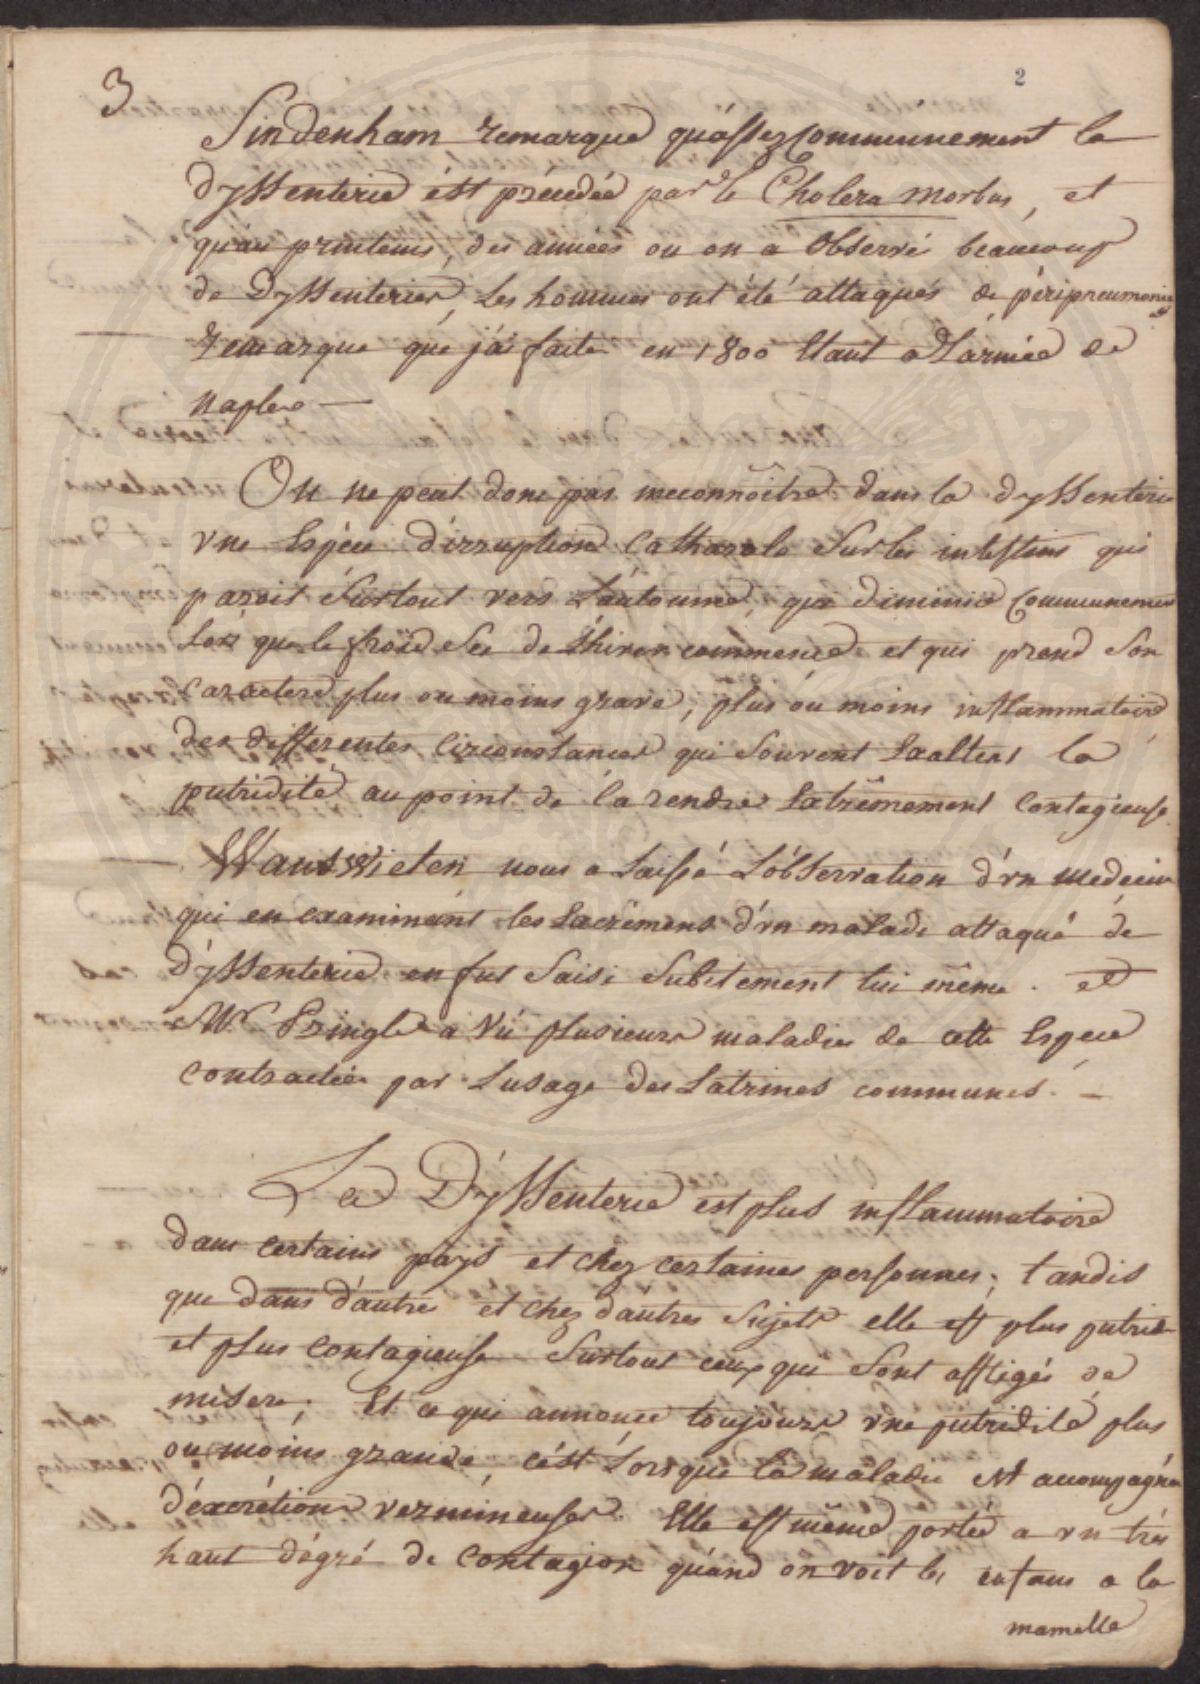 3
2
Sindenham remarque qu'assez Communement la
dyssenterie ést précedée par le Cholera morbus, et
qu'au printems, des années ou on a Observé beaucoup
de Dyssenteries, les hommes ont été attaqués de péripneumonie
remarque que j'ai faite en 1800 Etant a L'armée de
naples —
On ne peut donc pas meconnoître dans la dyssenterie
vne Espéce d'irruption Catharale Sur les intestins qui
paroit Surtout vers L'automne, qui diminüe Communement
Lors que le froid Sec de L'hiver commence et qui prend Son
Caractere plus ou moins grave, plus ou moins inflammatoire
des differentes Circonstances qui Souvent Exaltent la
putridité au point de la rendre Extrêmement Contagieuse.
Wanswieten nous a Laissé L'observation d'vn medecin
qui en examinant les Excrémens d'vn malade attaqué de
dyssenterie en fut Saisi Subitement lui même. et
Mr Pringle a Vû plusieurs maladies de cette Espece
contractées par Lusage des Latrines communes. —
La Dyssenterie est plus inflammatoire
dans certains pays et chez certaines personnes; tandis
que dans d'autres et chez d'autres Sujets elle est plus putride
et plus Contagieuse Surtout ceux qui Sont affligés de
misere; Et ce qui annonce toujours vne putridité plus
ou moins grande, c'est Lorsque la maladie est accompagnée
d'excrétions vermineuses. Elle est même portée a vn très
haut dégré de Contagion quand on voit les enfans a la
mamelle